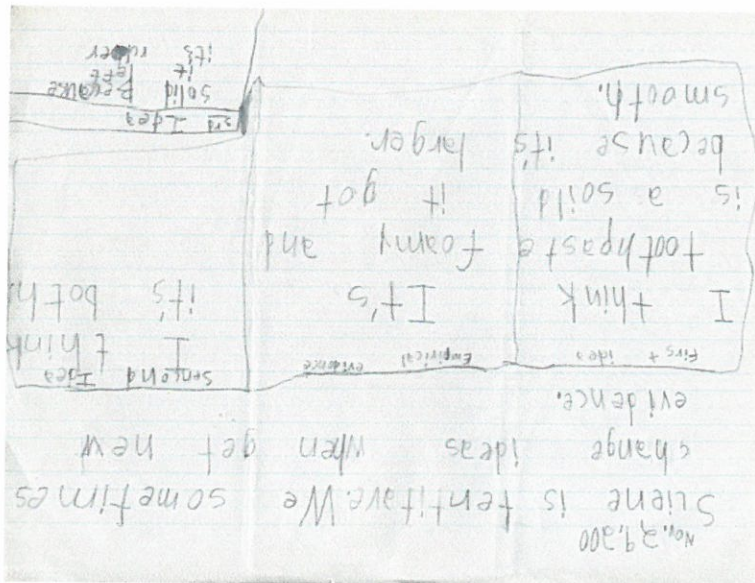 Nov, 29, 200
Sciene is tentitave. We sometimes
change ideas when get new
evidence.
First idea
I think
toothpaste
is a soild
because it's
smooth.
Empirical evidence
It's
foamy and
it got
larger.
Sencond Idea
I think
it's both.
3rd Idea
solid Because
it left
it's ruber